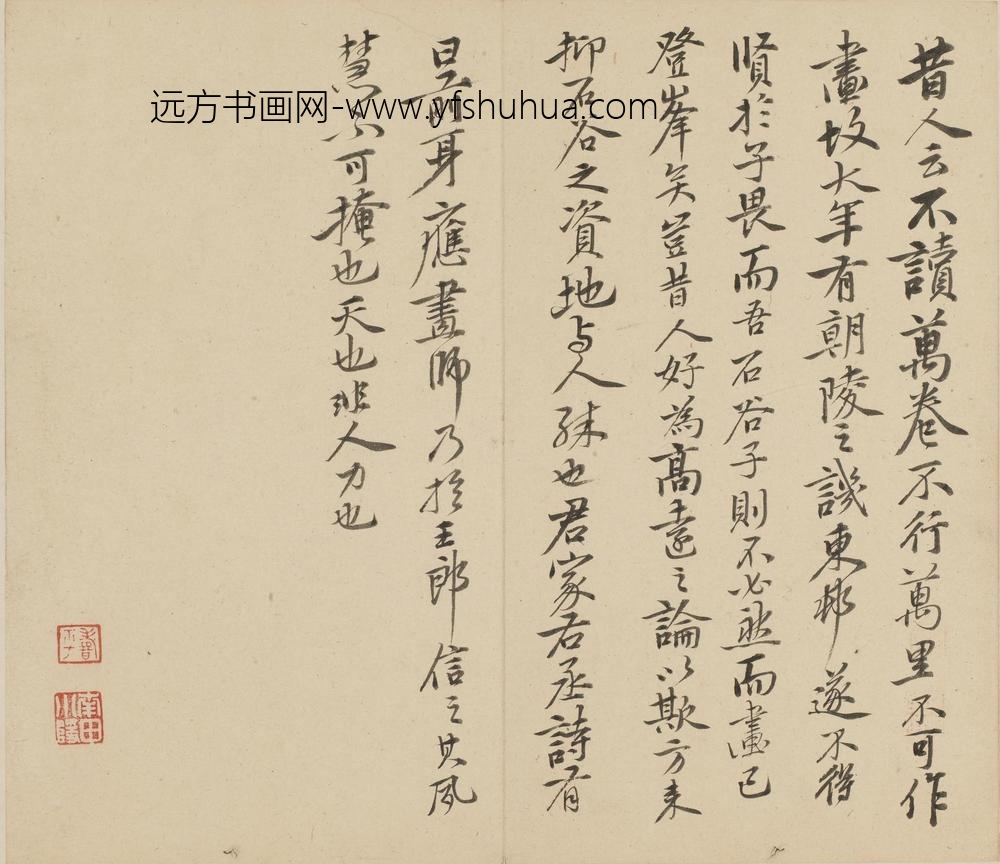 昔人云不讀萬卷不行萬里不可作
畫故大年有朝陵之譏東邨遂不得
賢於子畏而吾石谷子則不必然而畫已
登峯矣豈昔人好為高遠之論以欺方来
抑石谷之資地与人殊也君家右丞詩有
是前身應畫師乃於王郎信之其夙
慧不可掩也天也非人力也
远方书画网-www.yfshuhua.com